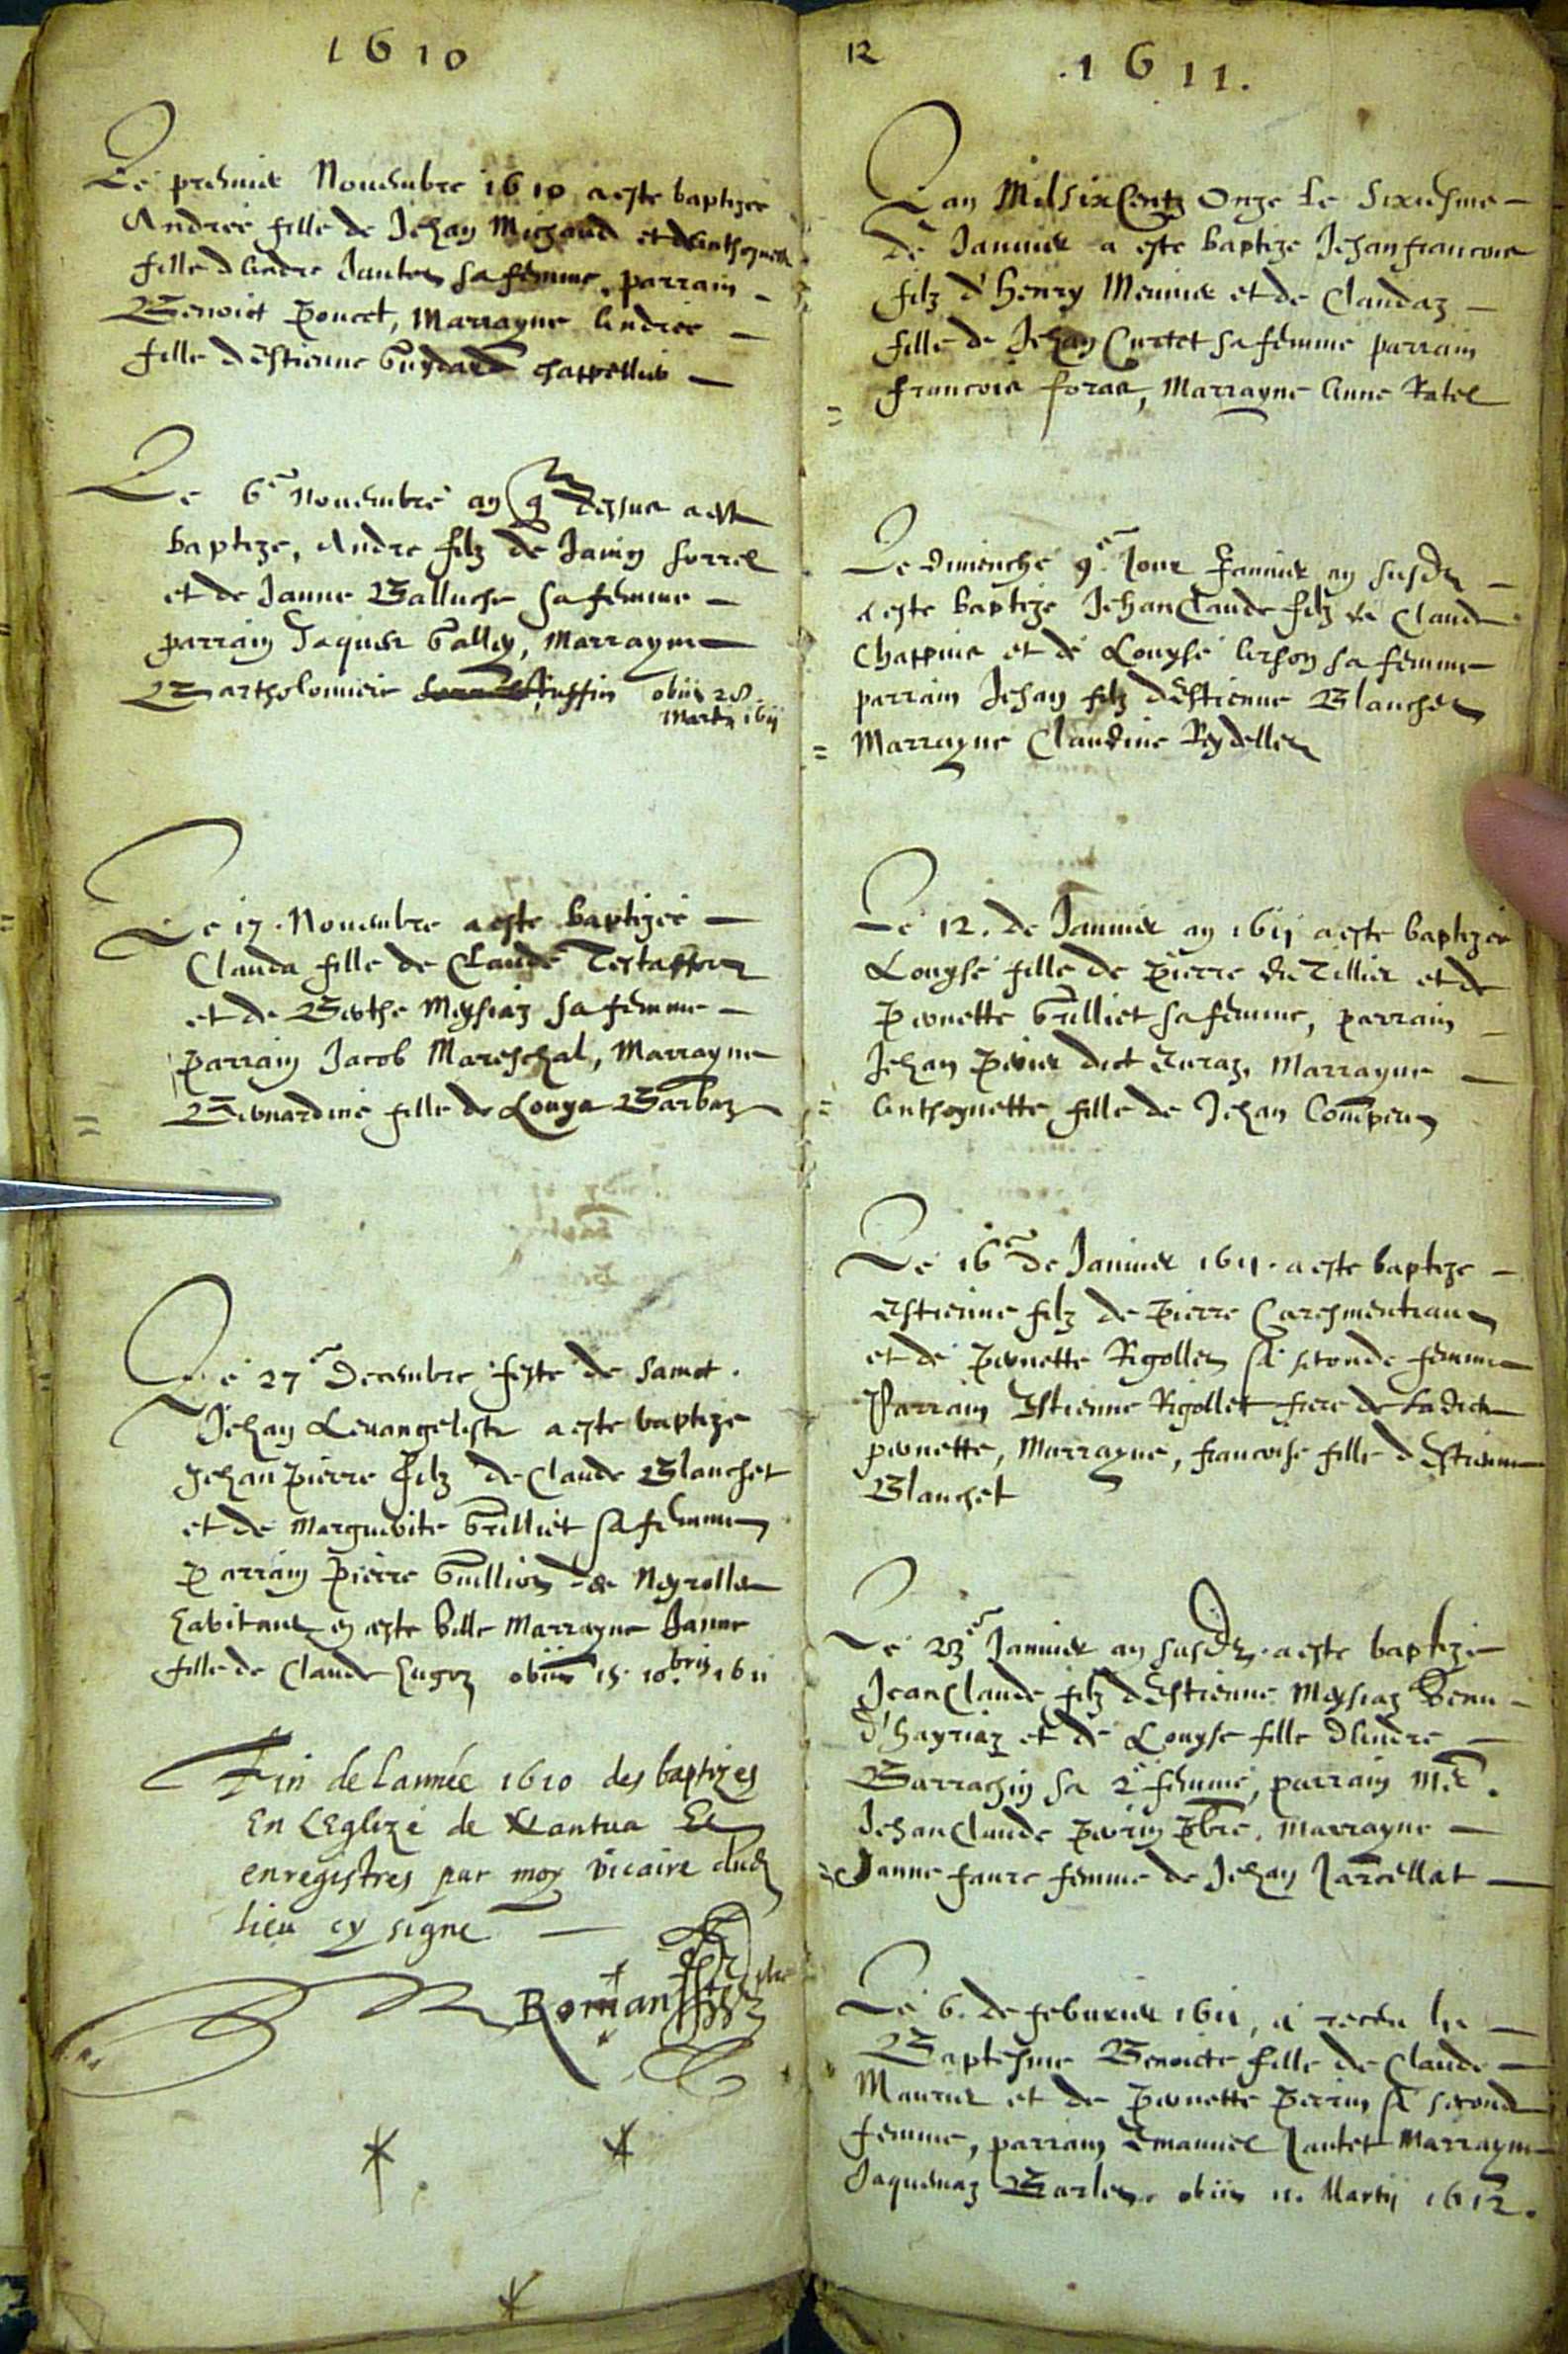 1610
Le premier Novembre 1610 a este baptizee
Andree fille de Jehan Michaud et dAnthoynette
fille dAndre Jantet sa femme, parrain
Benoict Poncet, Marrayne Andree
fille dEstienne Guydard chappellier
Le 6e Novembre an q dessus a este
baptize, Andre filz de Janin Sorrel
et de Janne Balluche sa femme
parrain Jaques Galley, Marrayne
Bartholomiere obiit 28
Martii 1611
Le 17. Novembre a este baptizee
Clauda fille de Claude Testaffort
et de Berthe Meysiaz sa femme
parrain Jacob Mareschal, Marrayne
Bernardine fille de Louys Barbaz
Le 27e Decembre feste de Sainct
Jehan Levangeliste a este baptize
Jehan Pierre filz de Claude Blanchet
et de Marguerite Grilliet sa femme
Parrain Pierre Guillion de Neyrolles
habitant en ceste Ville Marrayne Janne
fille de Claude Hugoz obiit 15. 10bris 1611
Fin de l'année 1610 des baptizes
En LEglize de Nantua Et
enregistres par moy vicaire dud
lieu cy signe
Roman
12
.1611.
Lan Mil six Centz Onze Le Sixiesme
de Janvier a este baptize Jehan francois
filz d'Henry Meunier et de Claudaz
fille de Jehan Curtet sa femme parrain
francois foras, Marrayne Anne Ratel
Le dimenche 9e Jour Janvier an susdt
a este baptize Jehan Claude filz de Claude
Chappuis et de Louyse Berson sa femme
parrain Jehan filz dEstienne Blanchet
Marrayne Claudine Reydellet
Le 12. de Janvier an 1611 a este baptizee
Louyse fille de Pierre du Tillier et de
Pernette Grilliet sa femme, parrain
Jehan Perier dict Turaz, Marrayne
Anthoynette fille de Jehan Comperet
Le 16e de Janvier 1611. a este baptize
Estienne filz de Pierre Caresmentrant
et de Pernette Rigollet sa seconde femme
Parrain Estienne Rigollet frere de Ladicte
pernette, Marrayne, francoise fille dEstienne
Blanchet
Le 23e Janvier an susdt. a este baptize
Jean Claude filz dEstienne Meysiaz Venu
d'Hayriaz et de Louyse fille dAndre
Barrachin sa 2e femme, parrain Mre.
Jehan Claude Perrin pbre, Marrayne
Janne Faure femme de Jehan Jarcellat
Le 6. de febvrier 1611, a receu le
Baptesme Benoicte fille de Claude
Maurier et de Pernette Perrin sa seconde
femme, parrain Emanuel Jantet Marrayne
Jaquemaz Barlet. obiit 11. Martii 1612.